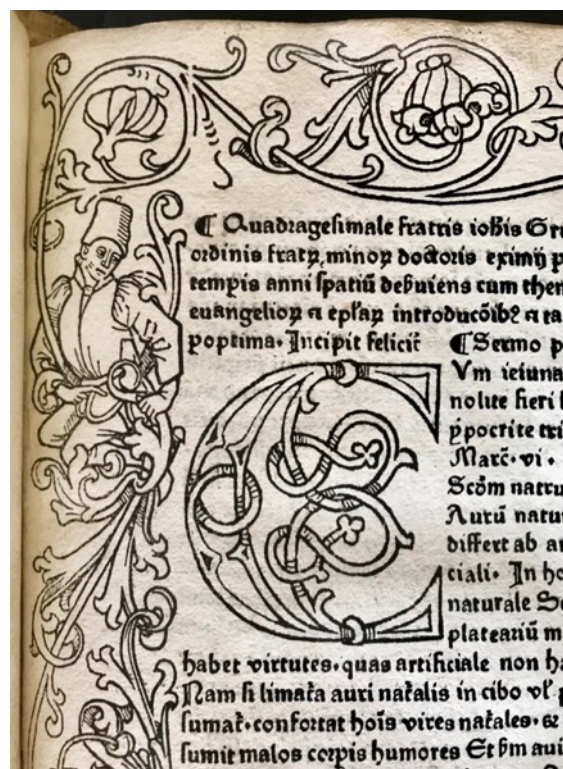 ¶ Quadragesimale fratris ioħis Gr
ordinis fratꝝ minoꝝ doctoris eximij p
tempis anni spatiū deẜuiens cum them
euangelioꝝ ⁊ epl̄aꝝ introducōibꝫ ⁊ ta
poptima. Incipit felicit̄
¶ Sermo p
CVm ieiuna
nolite fieri
ẏpocrite tri
Marc̄. vi.
Scd̄m natru
Autū natu
differt ab a
ciali. In ho
naturale
plateariū m
habet virtutes. quas artificiale non ha
Nam si limata auri nat̄alis in cibo vl̕ p
sumat̄. confortat hoīs vires nat̄ales. ⁊
sumit malos corpis humores Et ẜm aui